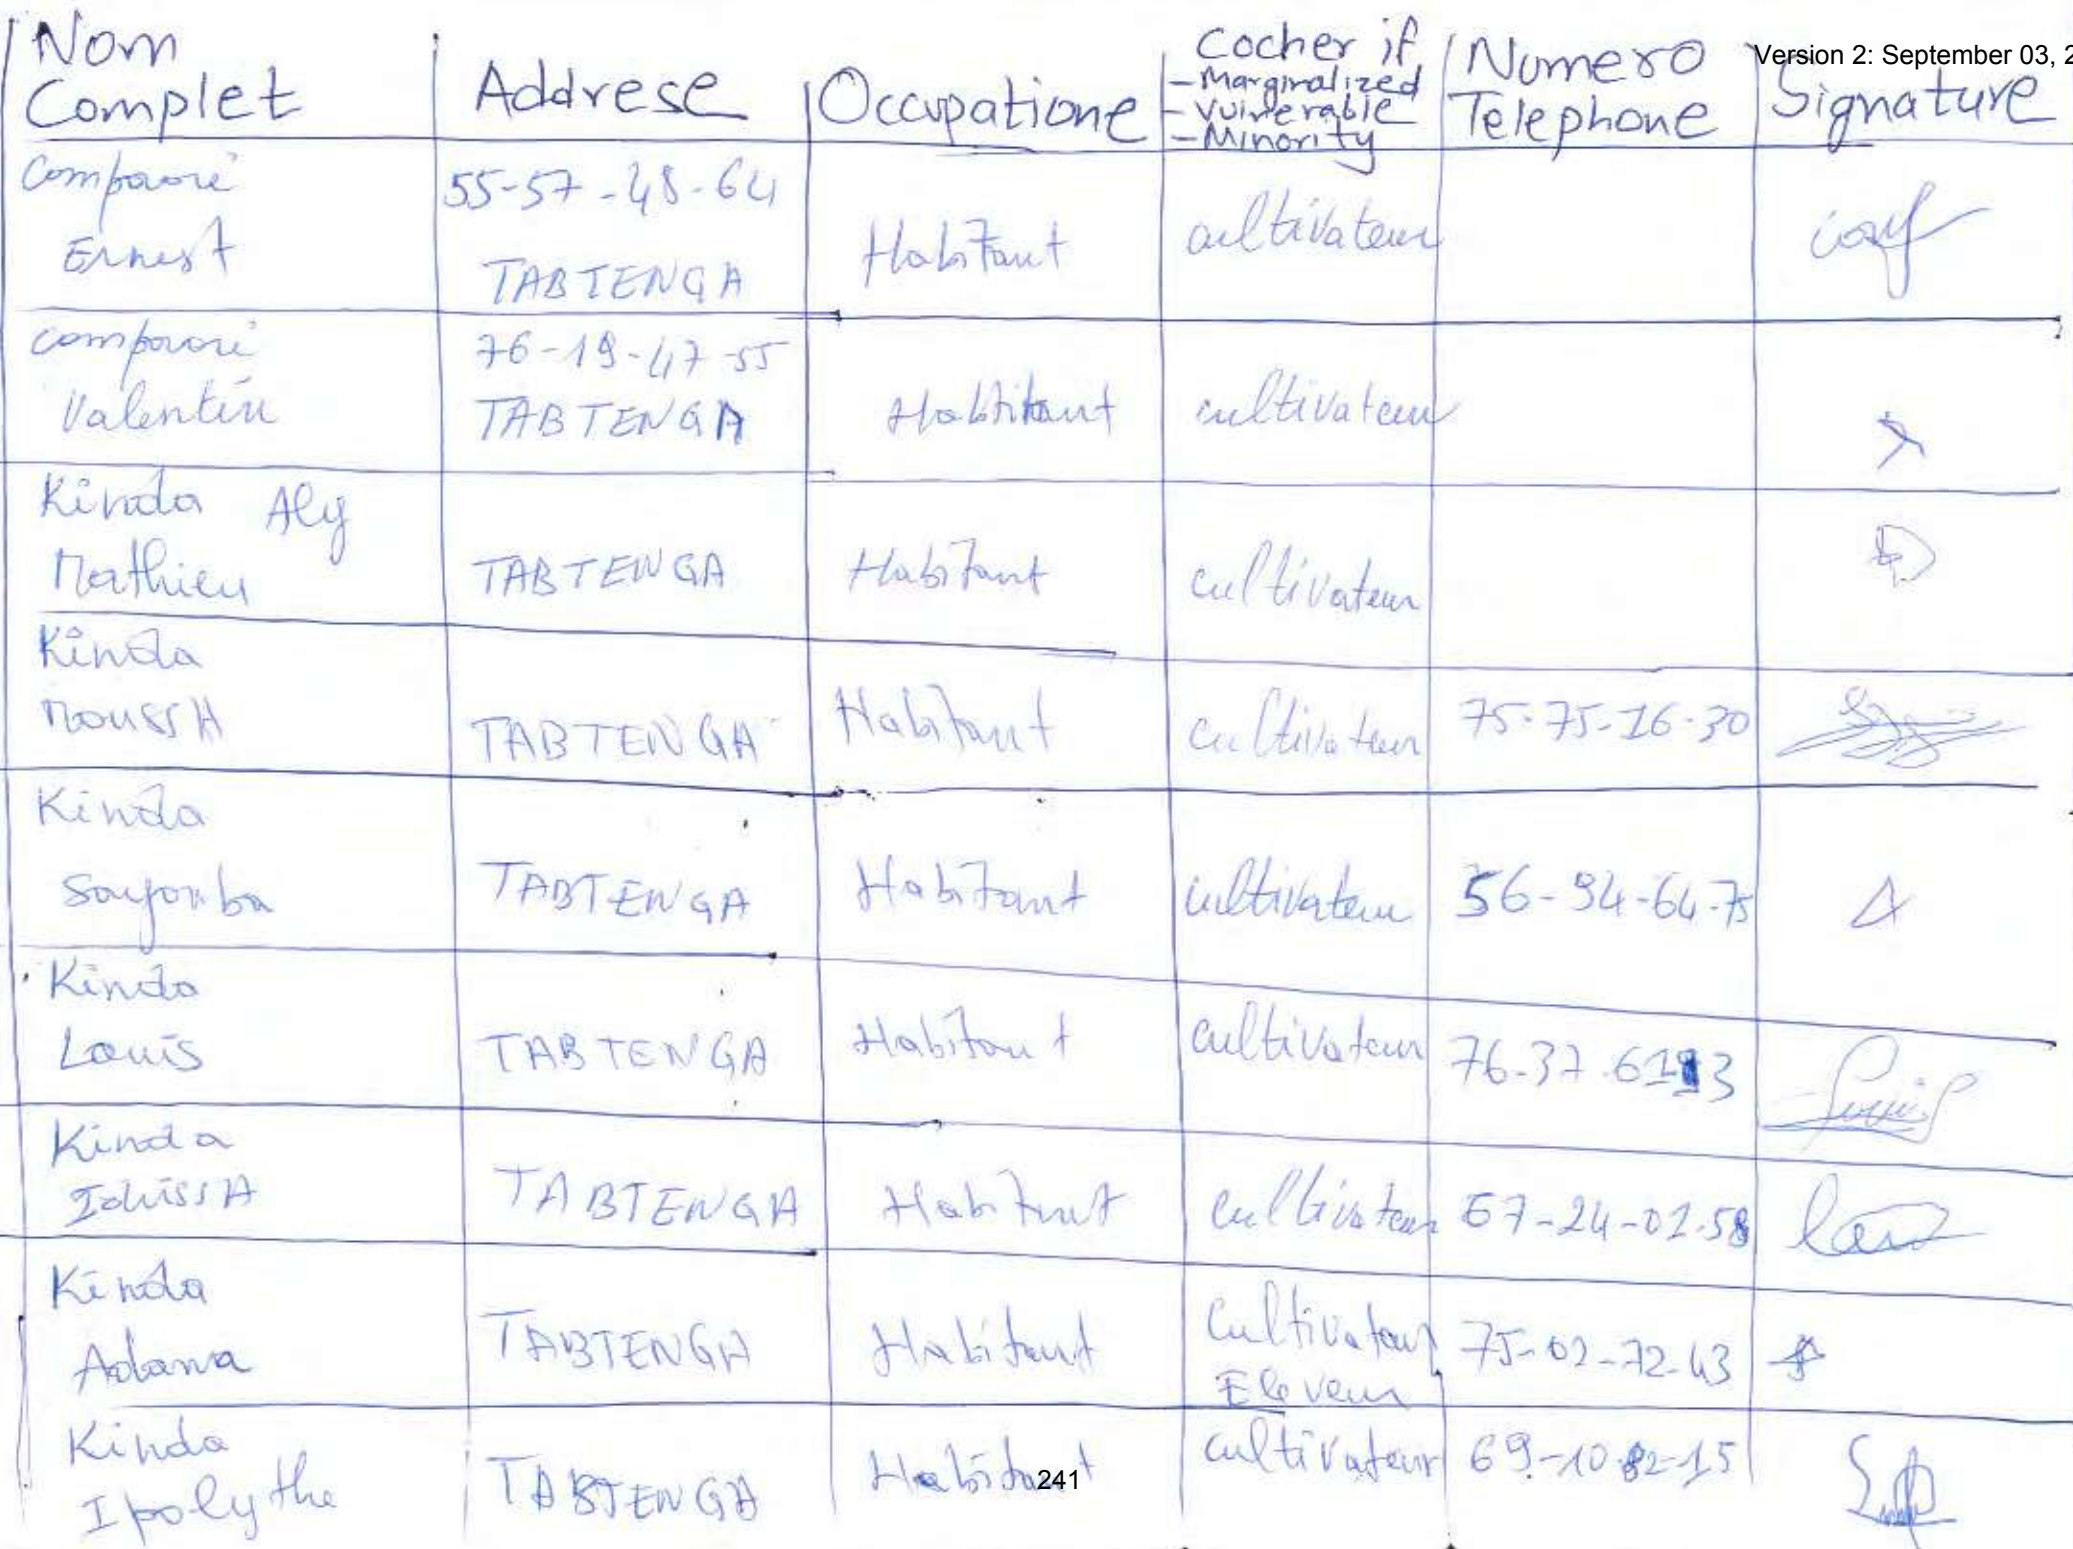 Version 2: September 03, 2
Nom Complet | Addrese | Occupatione | Cocher if - Marginalized - Vulnerable - Minority | Numero Telephone | Signature
Compaoré Ernest | 55-57-48-64 TABTENGA | Habitant | cultivateur
Compaoré Valentin | 76-19-47-55 TABTENGA | Habtitant | cultivateur
Kinda Aly Mathieu | TABTENGA | Habitant | cultivateur
Kinda MoussA | TABTENGA | Habitant | cultivateur | 75-75-16-30
Kinda | TABTENGA | Habitant | cultivateur | 56-94-64-75
Kinda Louis | TABTENGA | Habitant | cultivateur | 76-37-61
Kinda IdrissA | TABTENGA | Habitant | cultivateur | 67-24-01-58
Kinda Adama | TABTENGA | Habitant | Cultivateur Eleveur | 75-02-72-43
Kinda Ipolythe | TABTENGA | Habitant | cultivateur | 69-10-82-15
241